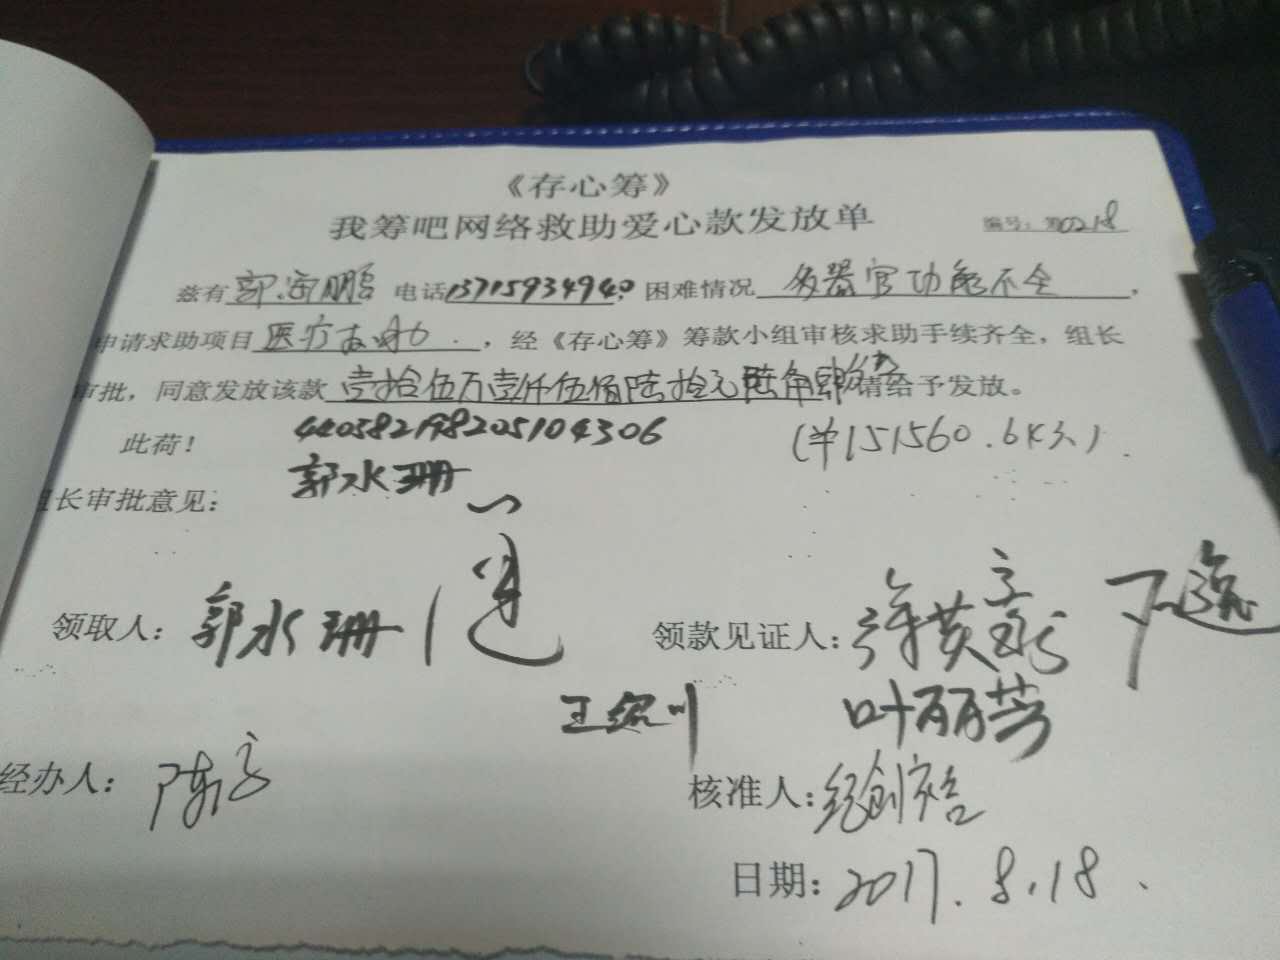 《存心筹》
我筹吧网络救助爱心款发放单
编号:第0218
兹有 郭海鹏 电话13715934940 困难情况 多器官功能不全 ,
申请求助项目 医疗救助 ,经《存心筹》筹款小组审核求助手续齐全,组长
审批,同意发放该款 壹拾伍万壹仟伍佰陆拾元陆角 请给予发放。
此荷!
440582198205104306
(¥151560.6
郭水珊
组长审批意见:
领取人: 郭水珊
领款见证人:
叶丽芳
经办人: 陈
核准人:
日期: 2017.8.18